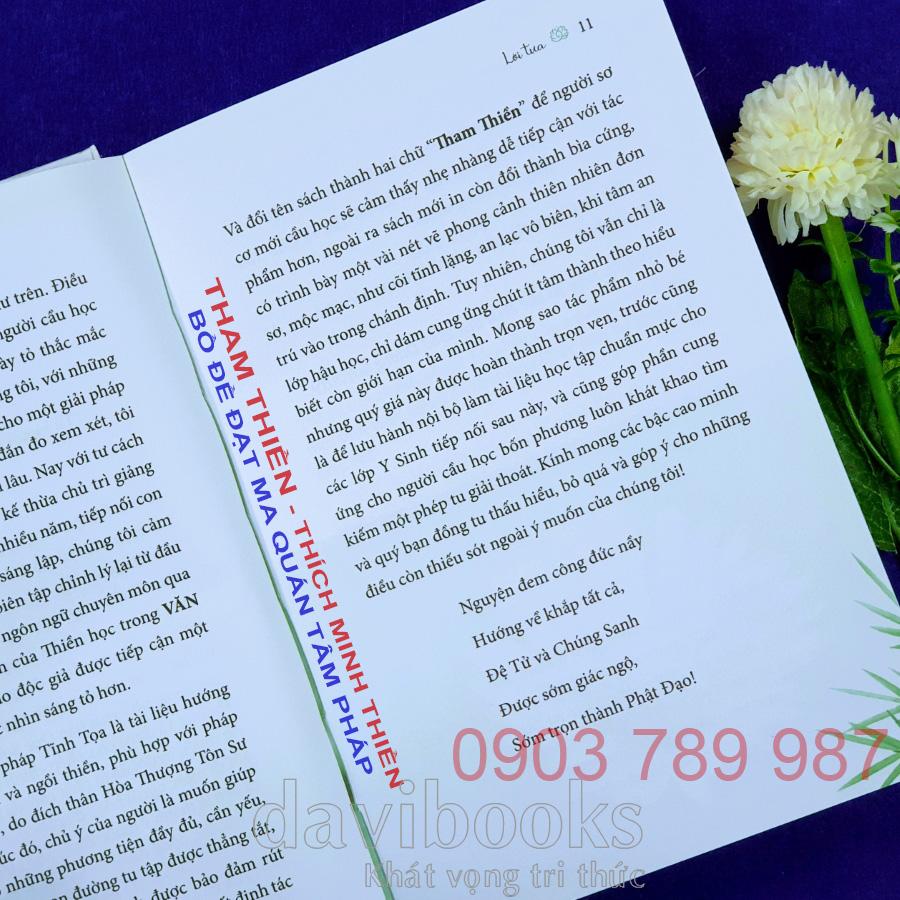 ư trên. Điều
gười cầu học
ày tỏ thắc mắc
ng tôi, với những
cho một giải pháp
đắn đo xem xét, tôi
lâu. Nay với tư cách
kế thừa chủ trì giảng
nhiều năm, tiếp nối con
sáng lập, chúng tôi cảm
biên tập chỉnh lý lại từ đầu
ngôn ngữ chuyên môn qua
n của Thiền học trong VĂN
o độc giả được tiếp cận một
nhìn sáng tỏ hơn.
pháp Tĩnh Tọa là tài liệu hướng
và ngồi thiền, phù hợp với pháp
, do đích thân Hòa Thượng Tôn Sư
úc đó, chủ ý của người là muốn giúp
những phương tiện đầy đủ, cần yếu,
n đường tu tập được thẳng tắt,
h được bảo đảm rút
ết định tác
Lời tựa 11
Và đổi tên sách thành hai chữ “Tham Thiền” để người sơ
cơ mới cầu học sẽ cảm thấy nhẹ nhàng dễ tiếp cận với tác
phẩm hơn, ngoài ra sách mới in còn đổi thành bìa cứng,
có trình bày một vài nét vẽ phong cảnh thiên nhiên đơn
sơ, mộc mạc, như cõi tĩnh lặng, an lạc vô biên, khi tâm an
trú vào trong chánh định. Tuy nhiên, chúng tôi vẫn chỉ là
lớp hậu học, chỉ dám cung ứng chút ít tâm thành theo hiểu
biết còn giới hạn của mình. Mong sao tác phẩm nhỏ bé
nhưng quý giá này được hoàn thành trọn vẹn, trước cũng
là để lưu hành nội bộ làm tài liệu học tập chuẩn mực cho
các lớp Y Sinh tiếp nối sau này, và cũng góp phần cung
ứng cho người cầu học bốn phương luôn khát khao tìm
kiếm một phép tu giải thoát. Kính mong các bậc cao minh
và quý bạn đồng tu thấu hiểu, bỏ quá và góp ý cho những
điều còn thiếu sót ngoài ý muốn của chúng tôi!
Nguyện đem công đức nầy
Hướng về khắp tất cả,
Đệ Tử và Chúng Sanh
Được sớm giác ngộ,
Sớm trọn thành Phật Đạo!
THAM THIỀN - THÍCH MINH THIỀN
BỒ ĐỀ ĐẠT MA QUÁN TÂM PHÁP
0903 789 987
davibooks
Khát vọng tri thức